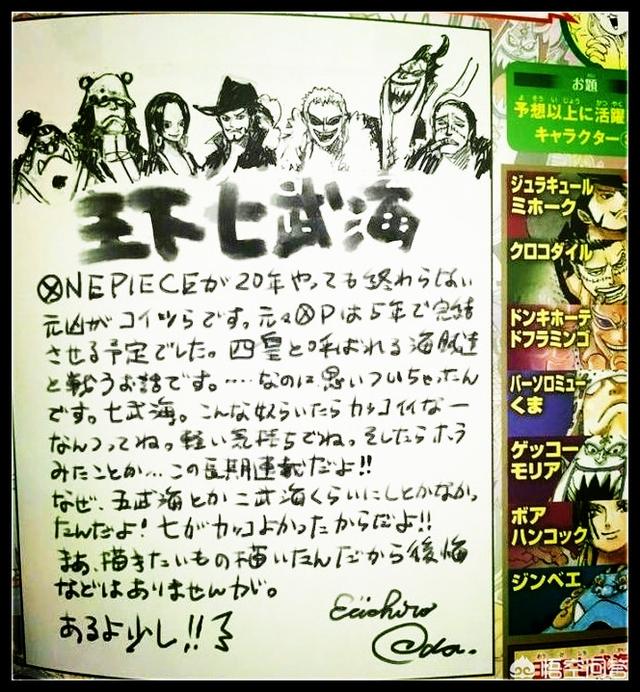 王下七武海
ONE PIECEが20年やっても終わらない
元凶がコイツらです。元々OPは5年で完結
させる予定でした。四皇と呼ばれる海賊達
と戦うお話です。……なのに思いついちゃったん
です。七武海。こんな奴らいたらカッコイイなー
なんつってね。軽い気持ちでね。そしたらホラ
みたことか…この長期連載だよ!!
なぜ、五武海とか二武海くらいにしとかなかっ
たんだよ!七がカッコよかったからだよ!!
まあ、描きたいもの描いたんだから後悔
などはありませんが。
あるよ少し!!
Eiichiro
Oda.
お題
よそういじょう かつやく
予想以上に活躍
キャラクター
ジュラキュール
ミホーク
クロコダイル
ドンキホーテ
ドフラミンゴ
バーソロミュー
くま
ゲッコー
モリア
ボア
ハンコック
ジンベエ
悟空问答